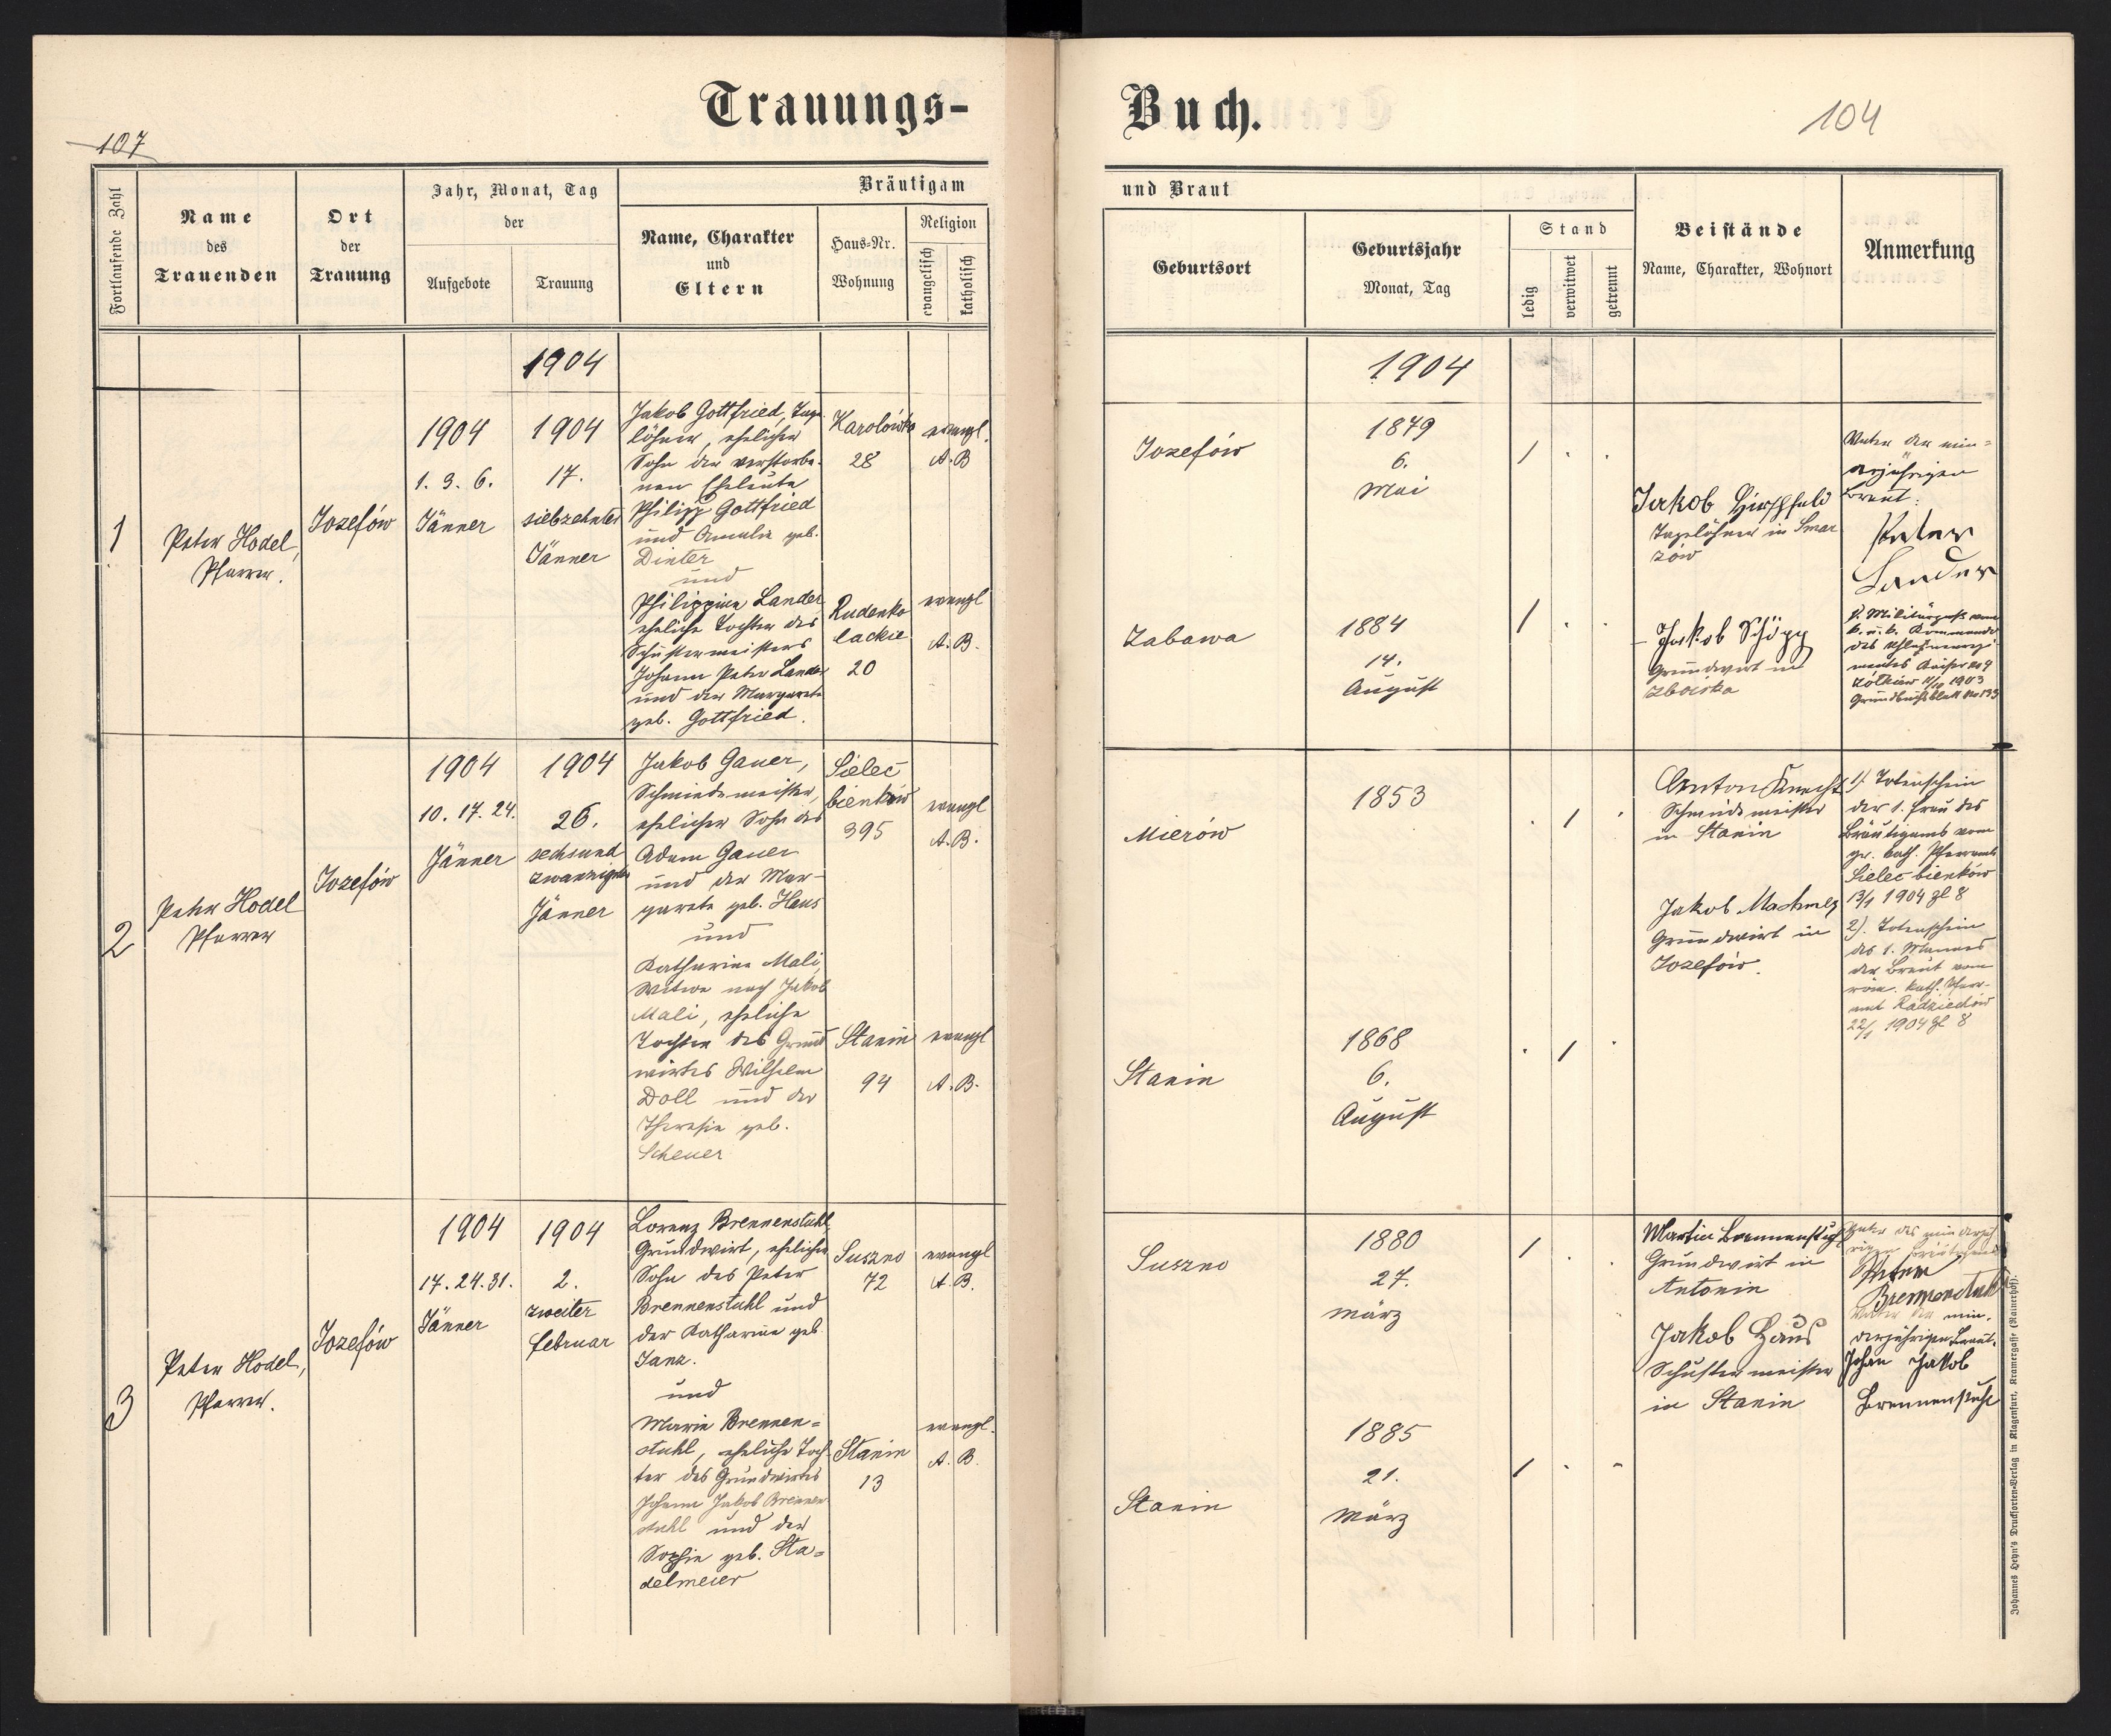 Trauungs-
Buch.
107
104
Fortlaufende Zahl
Name
des
Trauenden
Ort
der
Trauung
Jahr, Monat, Tag
der
Aufgebote
Trauung
Bräutigam
Name, Charakter
und
Eltern
Haus-Nr.
Wohnung
Religion
evangelisch
katholisch
und Braut
Geburtsort
Geburtsjahr
Monat, Tag
Stand
ledig
verwitwet
getrennt
Beistände
Name, Charakter, Wohnort
Anmerkung
1904
1904
1
Peter Hodel,
Pfarrer.
Jozefów
1904
1. 3. 6.
Jänner
1904
17.
siebzehnter
Jänner
Jakob Gottfried, Tage-
löhner, ehelicher
Sohn der verstorbe-
nen Eheleute
Philipp Gottfried
und Amalie geb.
Dinter
und
Philippine Lander
eheliche Tochter des
Schustermeisters
Johann Peter Lander
und der Margarete
geb. Gottfried.
Karolówka
28
evangl.
A. B
Rudenko
lackie
20
evangl
A. B.
Jozefów
1879
6.
Mai
Zabawa
1884
14.
August
Jakob Hirschfeld
Tagelöhner in Smar
zów
Jakob Schöpp
Grundwirt in
Zboiska
Vater der min=
derjährigen
Braut:
Peter
Lander
1). Militärpass vom
k. u. k. Kommando
des Uhlanenregi
mentes Kaiser No 4
Zółkiew 11/10 1903
Grundbuchsblatt No 133
2
Peter Hodel
Pfarrer
Jozefów
1904
10. 17. 24.
Jänner
1904
26.
sechsund
zwanzigster
Jänner
Jakob Gauer,
Schmiedemeister,
ehelicher Sohn des
Adam Gauer
und der Mar-
garete geb. Haus
und
Katharina Mali,
Witwe nach Jakob
Mali, eheliche
Tochter des Grund
wirtes Wilhelm
Doll und der
Theresia geb.
Scheuer
Sielec
bienków
395
evangl
A. B.
Stanin
94
evangl
A. B.
Mierów
1853
Stanin
1868
6.
August
Anton Knecht
Schmiedemeister
in Stanin
Jakob
Grundwirt in
Jozefów.
1). Totenschein
der 1. Frau des
Bräutigams vom
gr. kath. Pfarramt
Sielec bienków
13/1 1904 Zl 8
2). Totenschein
des 1. Mannes
der Braut vom
röm. kath. Pfarr-
amt Radziechów
22/1 1904 Zl 8
3
Peter Hodel,
Pfarrer.
Jozefów
1904
17. 24. 31.
Jänner
1904
2.
zweiter
Februar
Lorenz Brennenstuhl,
Grundwirt, ehelicher
Sohn des Peter
Brennenstuhl und
der Katharina geb.
Janz.
und
Maria Brennen=
stuhl, eheliche Toch-
ter des Grundwirtes
Johann Jakob Brennen
stuhl und der
Sophie geb. Sta=
delmeier
Suszno
72
evangl
A. B.
Stanin
13
evangl.
A. B.
Suszno
1880
27.
März
Stanin
1885
21.
März
Martin Brennenstuhl
Grundwirt in
Antonin
Jakob Haus
Schustermeister
in Stanin
Vater des minderjäh
rigen Bräutigams
Peter
Brennenstuhl
Vater der min.
derjährigen Braut.
Johan Jakob
Brennenstuhl
Johannes Heyn's Drucksorten-Verlag in Klagenfurt, Kramergasse (Rainerhof).